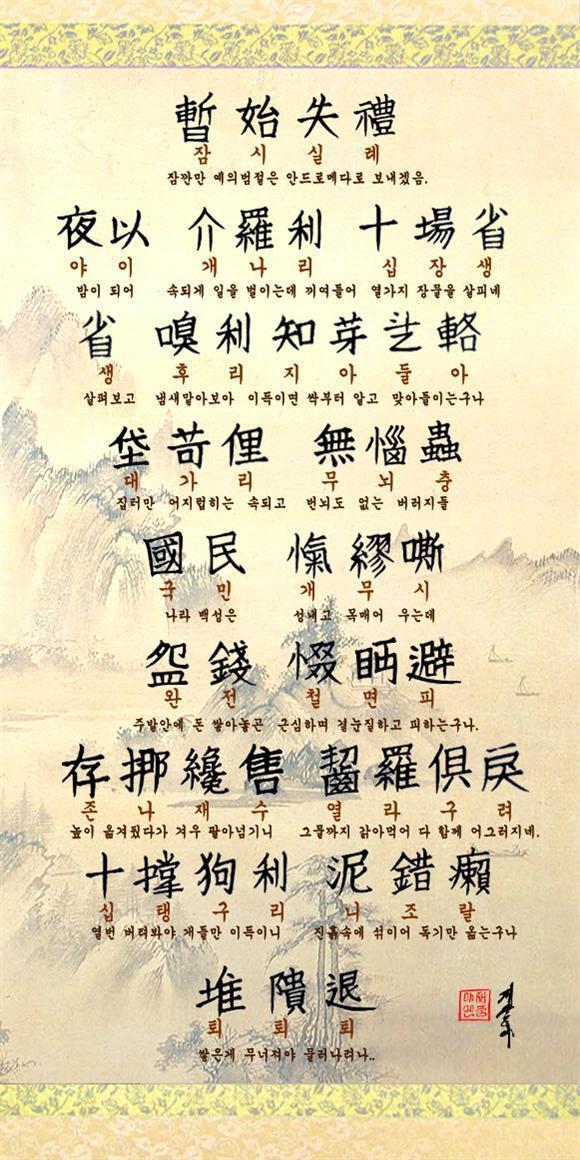 暫始失禮
잠시실례
잠깐만 예의범절은 안드로메다로 보내겠음.
夜以 介羅利 十場省
야이 개나리 십장생
밤이 되어 속되게 일을 벌이는데 끼여들어 열가지 장물을 살피네
省 嗅利知芽乧輅
생 후리지아들아
살펴보고 냄새맡아보아 이득이면 싹부터 알고 맞아들이는구나
垈苛俚 無惱蟲
대가리 무뇌충
집터만 어지럽히는 속되고 번뇌도 없는 버러지들
國民 愾繆嘶
국민 개무시
나라 백성은 성내고 목매어 우는데
盌錢 惙眄避
완전 철면피
주발안에 돈 쌓아놓곤 근심하며 곁눈질하고 피하는구나.
存挪纔售 齧羅俱戾
존나재수 열라구려
높이 옮겨줬다가 겨우 팔아넘기니 그물까지 갉아먹어 다 함께 어그러지네.
十撑狗利 泥錯癩
십탱구리 니조랄
열번 버텨봐야 개들만 이득이니 진흙속에 섞이어 독기만 옮는구나
堆隤退
퇴퇴퇴
쌓은게 무너져야 물러나려나..